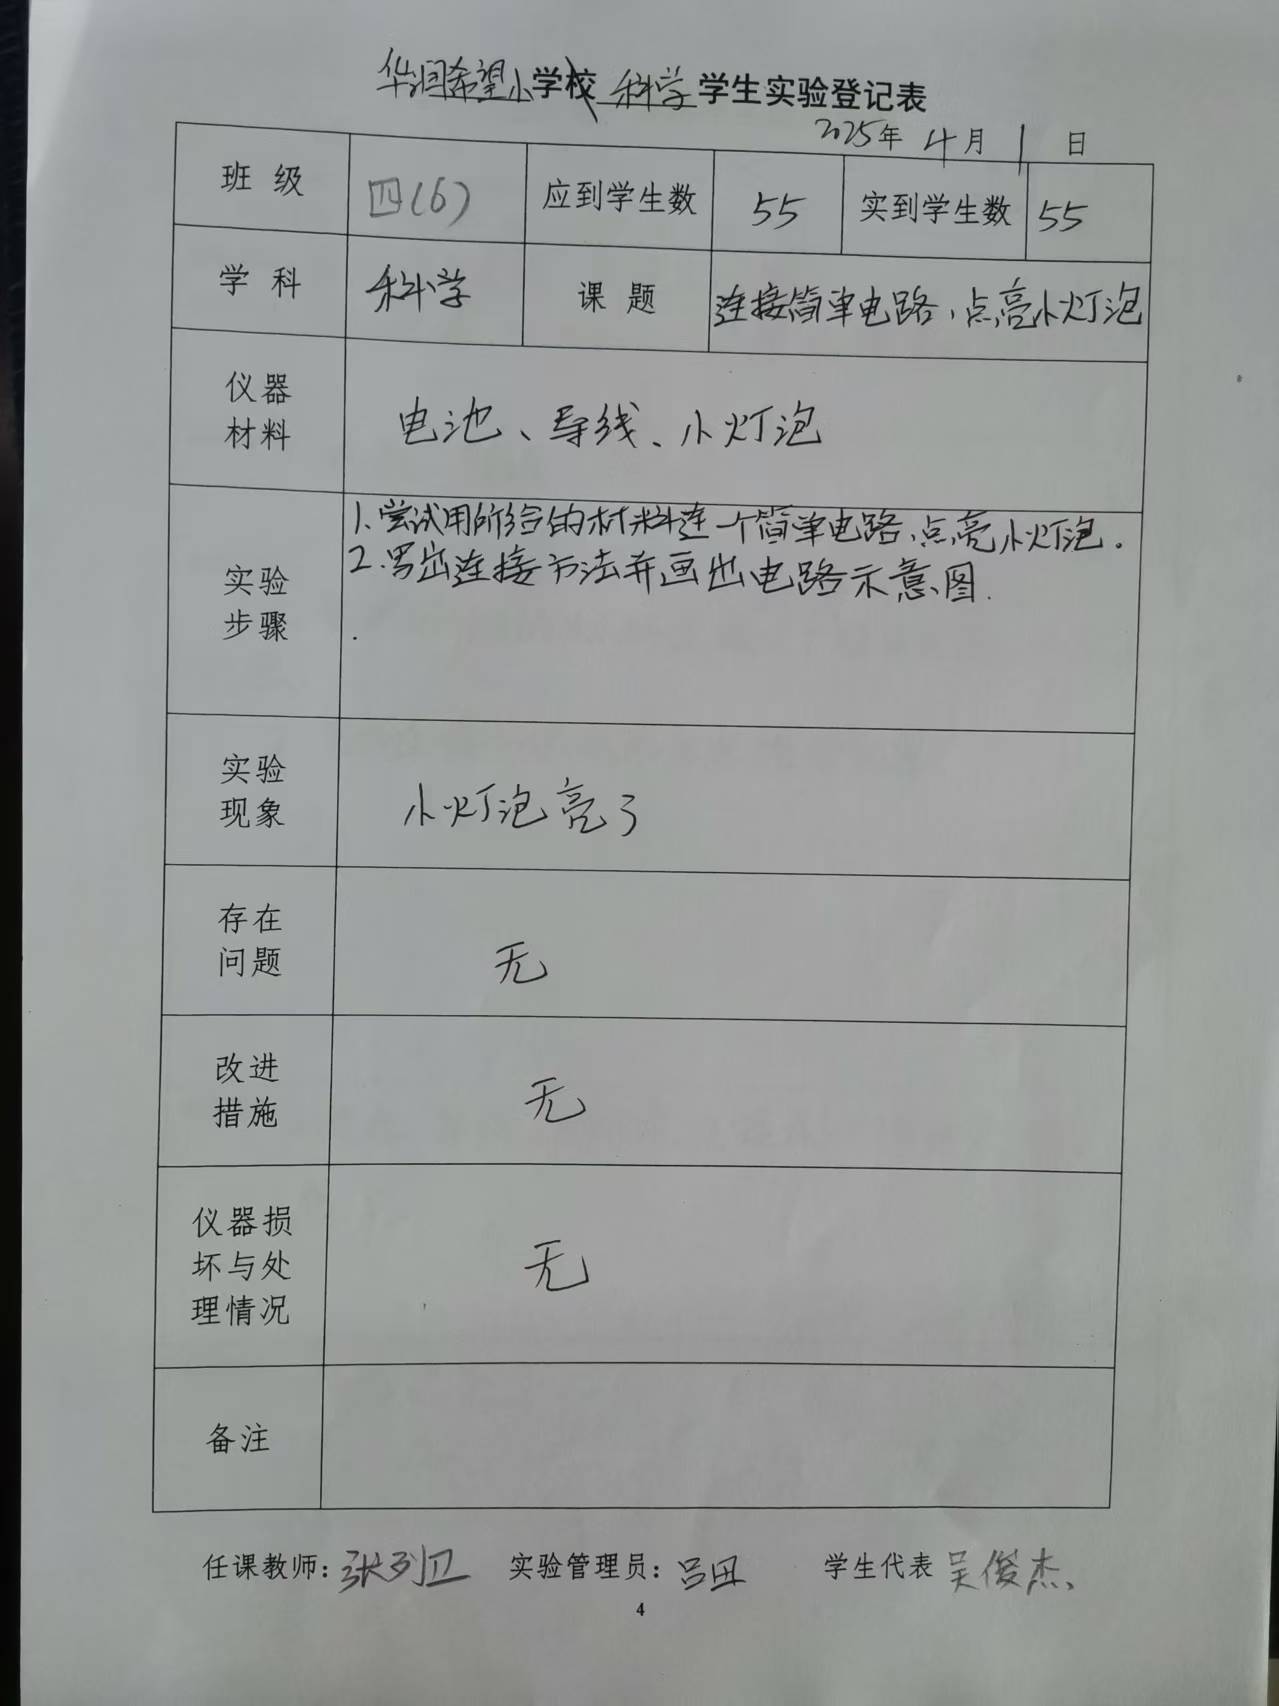 华润希望小学校 科学 学生实验登记表
2025年 4月 1 日
班 级 四(6) 应到学生数 55 实到学生数 55
学 科 科学 课 题 连接简单电路,点亮小灯泡
仪器
材料
电池、导线、小灯泡
实验
步骤
1.尝试用所给的材料连一个简单电路,点亮小灯泡.
2.写出连接方法并画出电路示意图.
实验
现象
小灯泡亮了
存在
问题
无
改进
措施
无
仪器损
坏与处
理情况
无
备注
任课教师: 张列卫 实验管理员: 吕丑 学生代表 吴俊杰
4